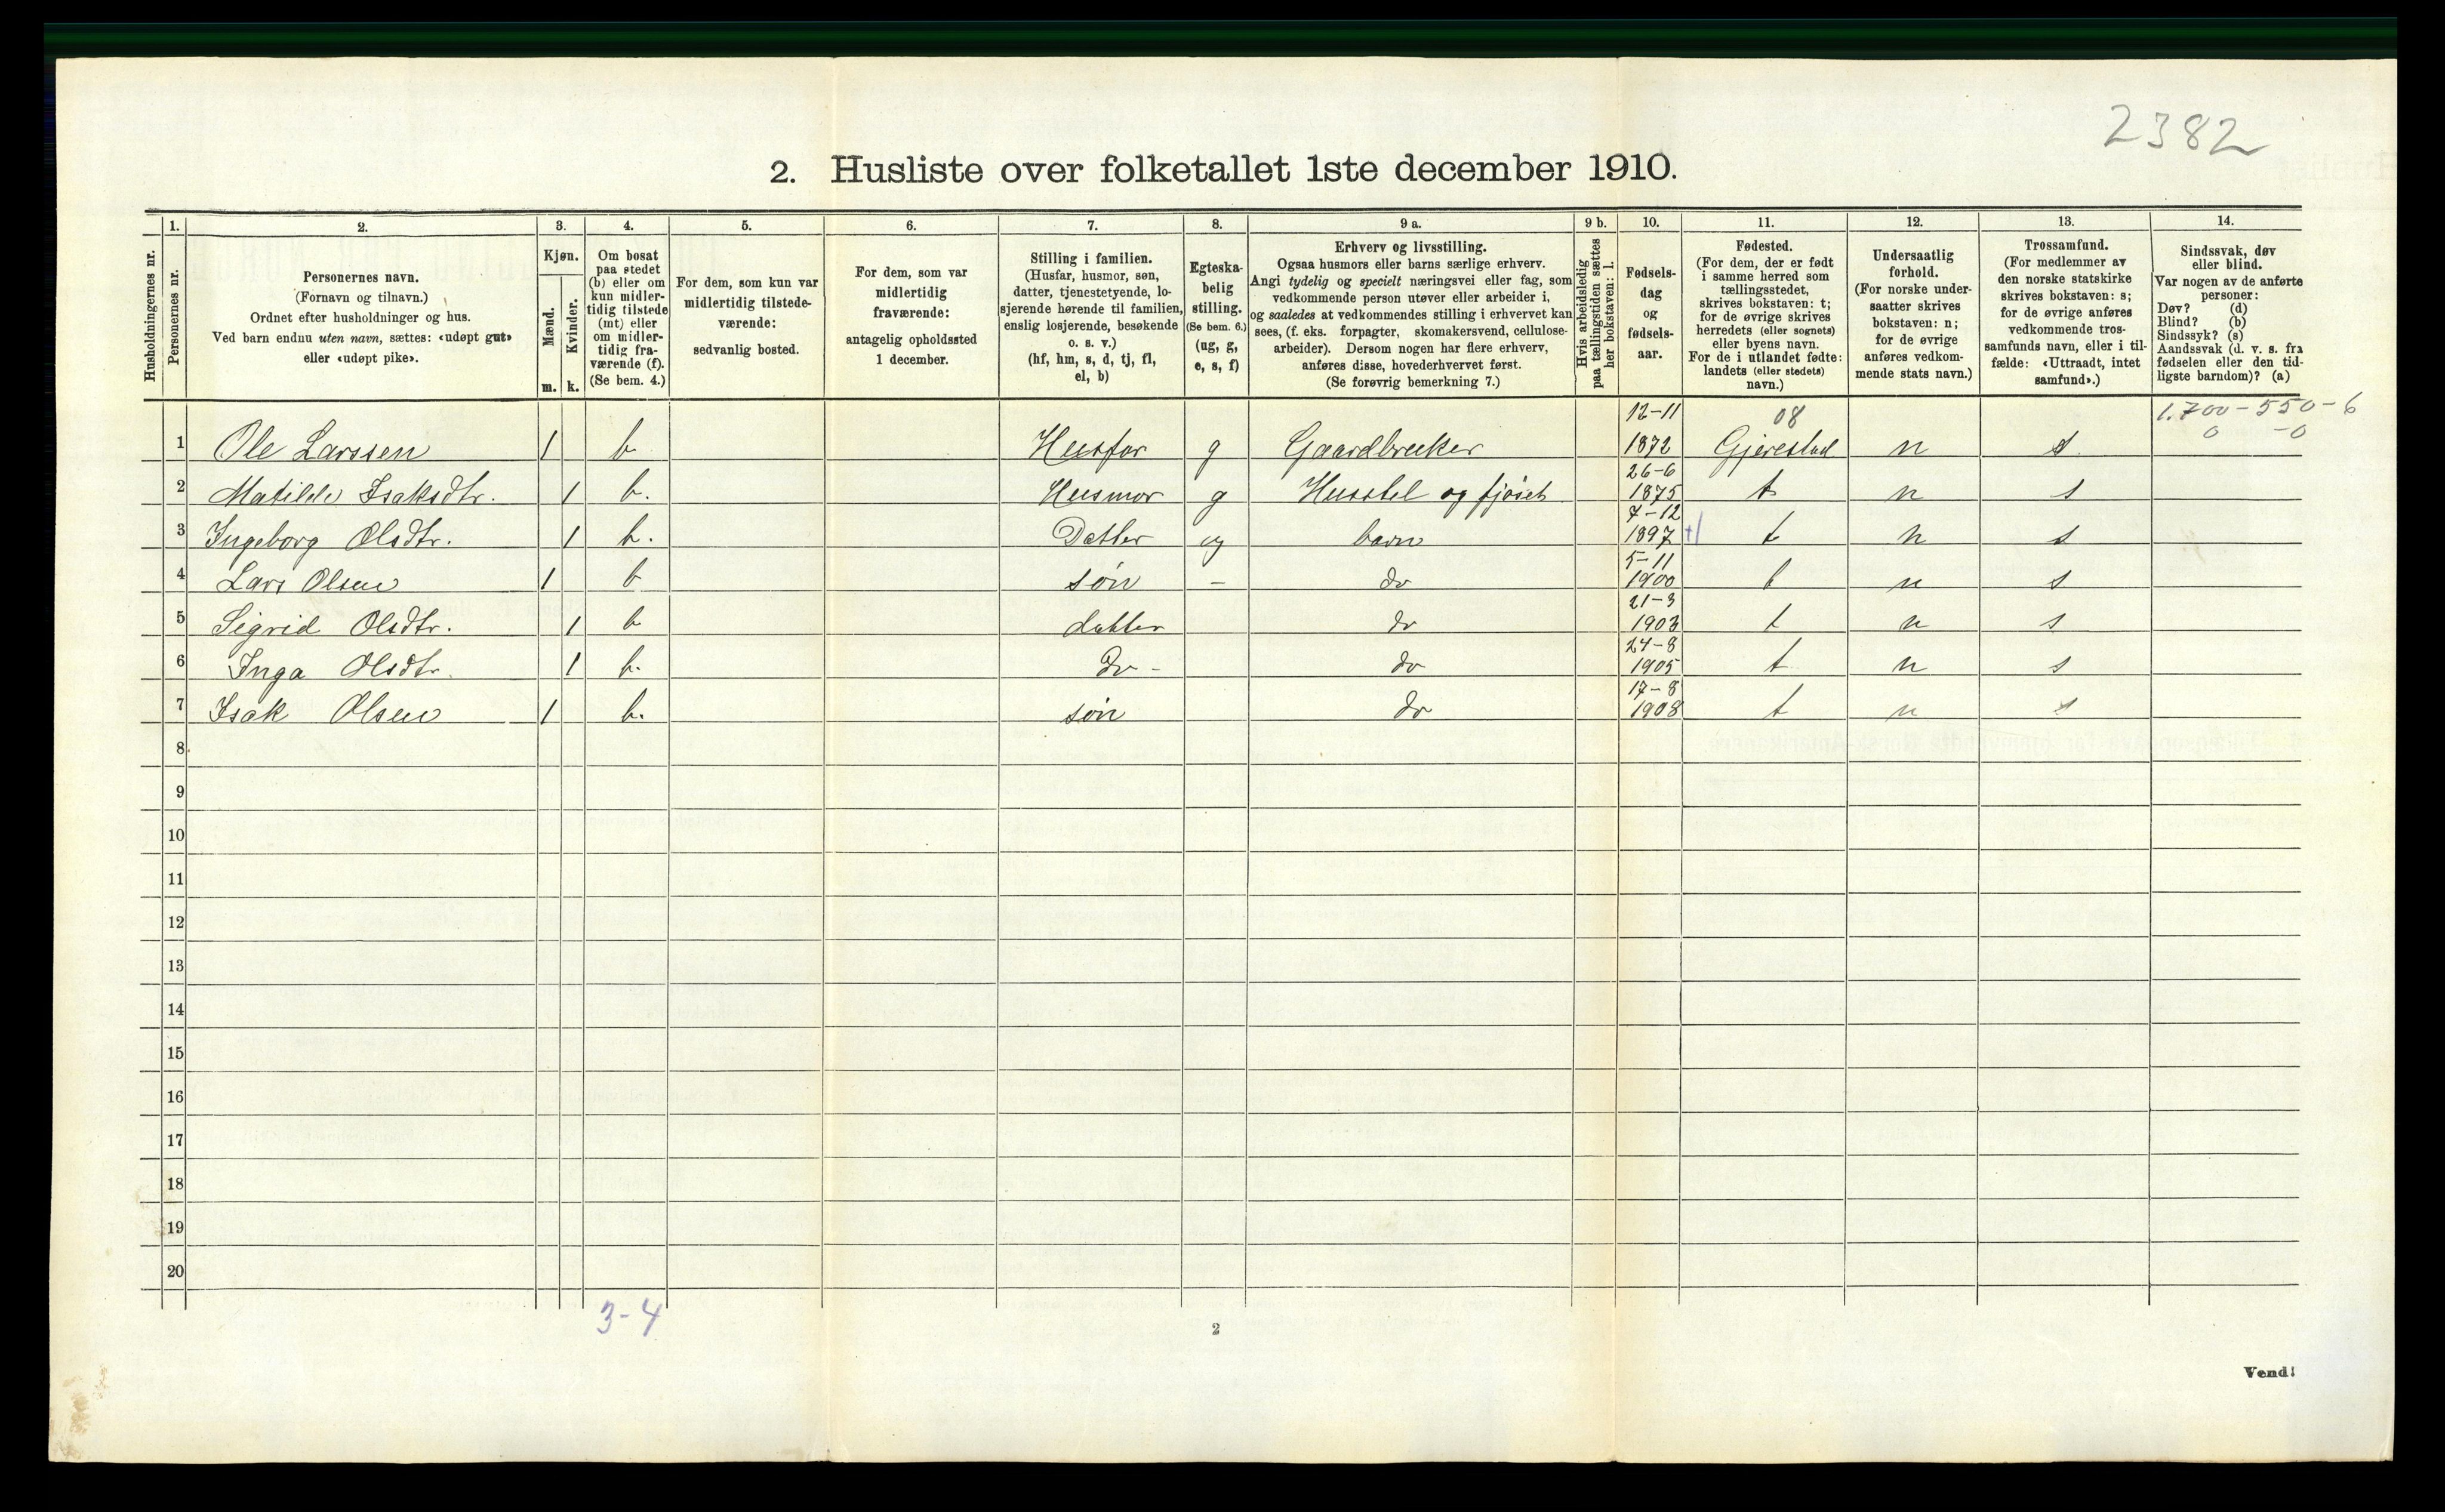 2382
2. Husliste over folketallet 1ste december 1910.
1. 2. 3. 4. 5. 6. 7. 8. 9 a. 9 b. 10. 11. 12. 13. 14.
Husholdningernes nr.
Personernes nr.
Personernes navn.
(Fornavn og tilnavn.)
Ordnet efter husholdninger og hus.
Ved barn endnu uten navn, sættes: «udøpt gut»
eller «udøpt pike».
Kjøn.
Mænd.
Kvinder.
m. k.
Om bosat
paa stedet
(b) eller om
kun midler-
tidig tilstede
(mt) eller
om midler-
tidig fra-
værende (f).
(Se bem. 4.)
For dem, som kun var
midlertidig tilstede-
værende:
sedvanlig bosted.
For dem, som var
midlertidig
fraværende:
antagelig opholdssted
1 december.
Stilling i familien.
(Husfar, husmor, søn,
datter, tjenestetyende, lo-
sjerende hørende til familien,
enslig losjerende, besøkende
o. s. v.)
(hf, hm, s, d, tj, fl,
el, b)
Egteska-
belig
stilling.
(Se bem. 6.)
(ug, g,
e, s, f)
Erhverv og livsstilling.
Ogsaa husmors eller barns særlige erhverv.
Angi tydelig og specielt næringsvei eller fag, som
vedkommende person utøver eller arbeider i,
og saaledes at vedkommendes stilling i erhvervet kan
sees, (f. eks. forpagter, skomakersvend, cellulose-
arbeider). Dersom nogen har flere erhverv,
anføres disse, hovederhvervet først.
(Se forøvrig bemerkning 7.)
Hvis arbeidsledig
paa tællingstiden sættes
her bokstaven: l.
Fødsels-
dag
og
fødsels-
aar.
Fødested.
(For dem, der er født
i samme herred som
tællingsstedet,
skrives bokstaven: t;
for de øvrige skrives
herredets (eller sognets)
eller byens navn.
For de i utlandet fødte:
landets (eller stedets)
navn.)
Undersaatlig
forhold.
(For norske under-
saatter skrives
bokstaven: n;
for de øvrige
anføres vedkom-
mende stats navn.)
Trossamfund.
(For medlemmer av
den norske statskirke
skrives bokstaven: s;
for de øvrige anføres
vedkommende tros-
samfunds navn, eller i til-
fælde: «Uttraadt, intet
samfund».)
Sindssvak, døv
eller blind.
Var nogen av de anførte
personer:
Døv? (d)
Blind? (b)
Sindssyk? (s)
Aandssvak (d. v. s. fra
fødselen eller den tid-
ligste barndom)? (a)
12-11 08 1.700-550-6
0 -0
1 Ole Larssen 1 b Husfar g Gaardbruker 1872 Gjerestad n s
26-6
2 Matilde Isaksdtr. 1 b. Husmor g Husstel og fjøset 1875 t n s
7-12
3 Ingeborg Olsdtr. 1 b. Datter ug barn 1897 t n s
5-11
4 Lars Olsen 1 b søn - do 1900 t n s
21-3
5 Sigrid Olsdtr. 1 b datter do 1903 t n s
24-8
6 Inga Olsdtr. 1 b. do - do 1905 t n s
17-8
7 Isak Olsen 1 b. søn do 1908 t n s
8
9
10
11
12
13
14
15
16
17
18
19
20
3-4
2
Vend!